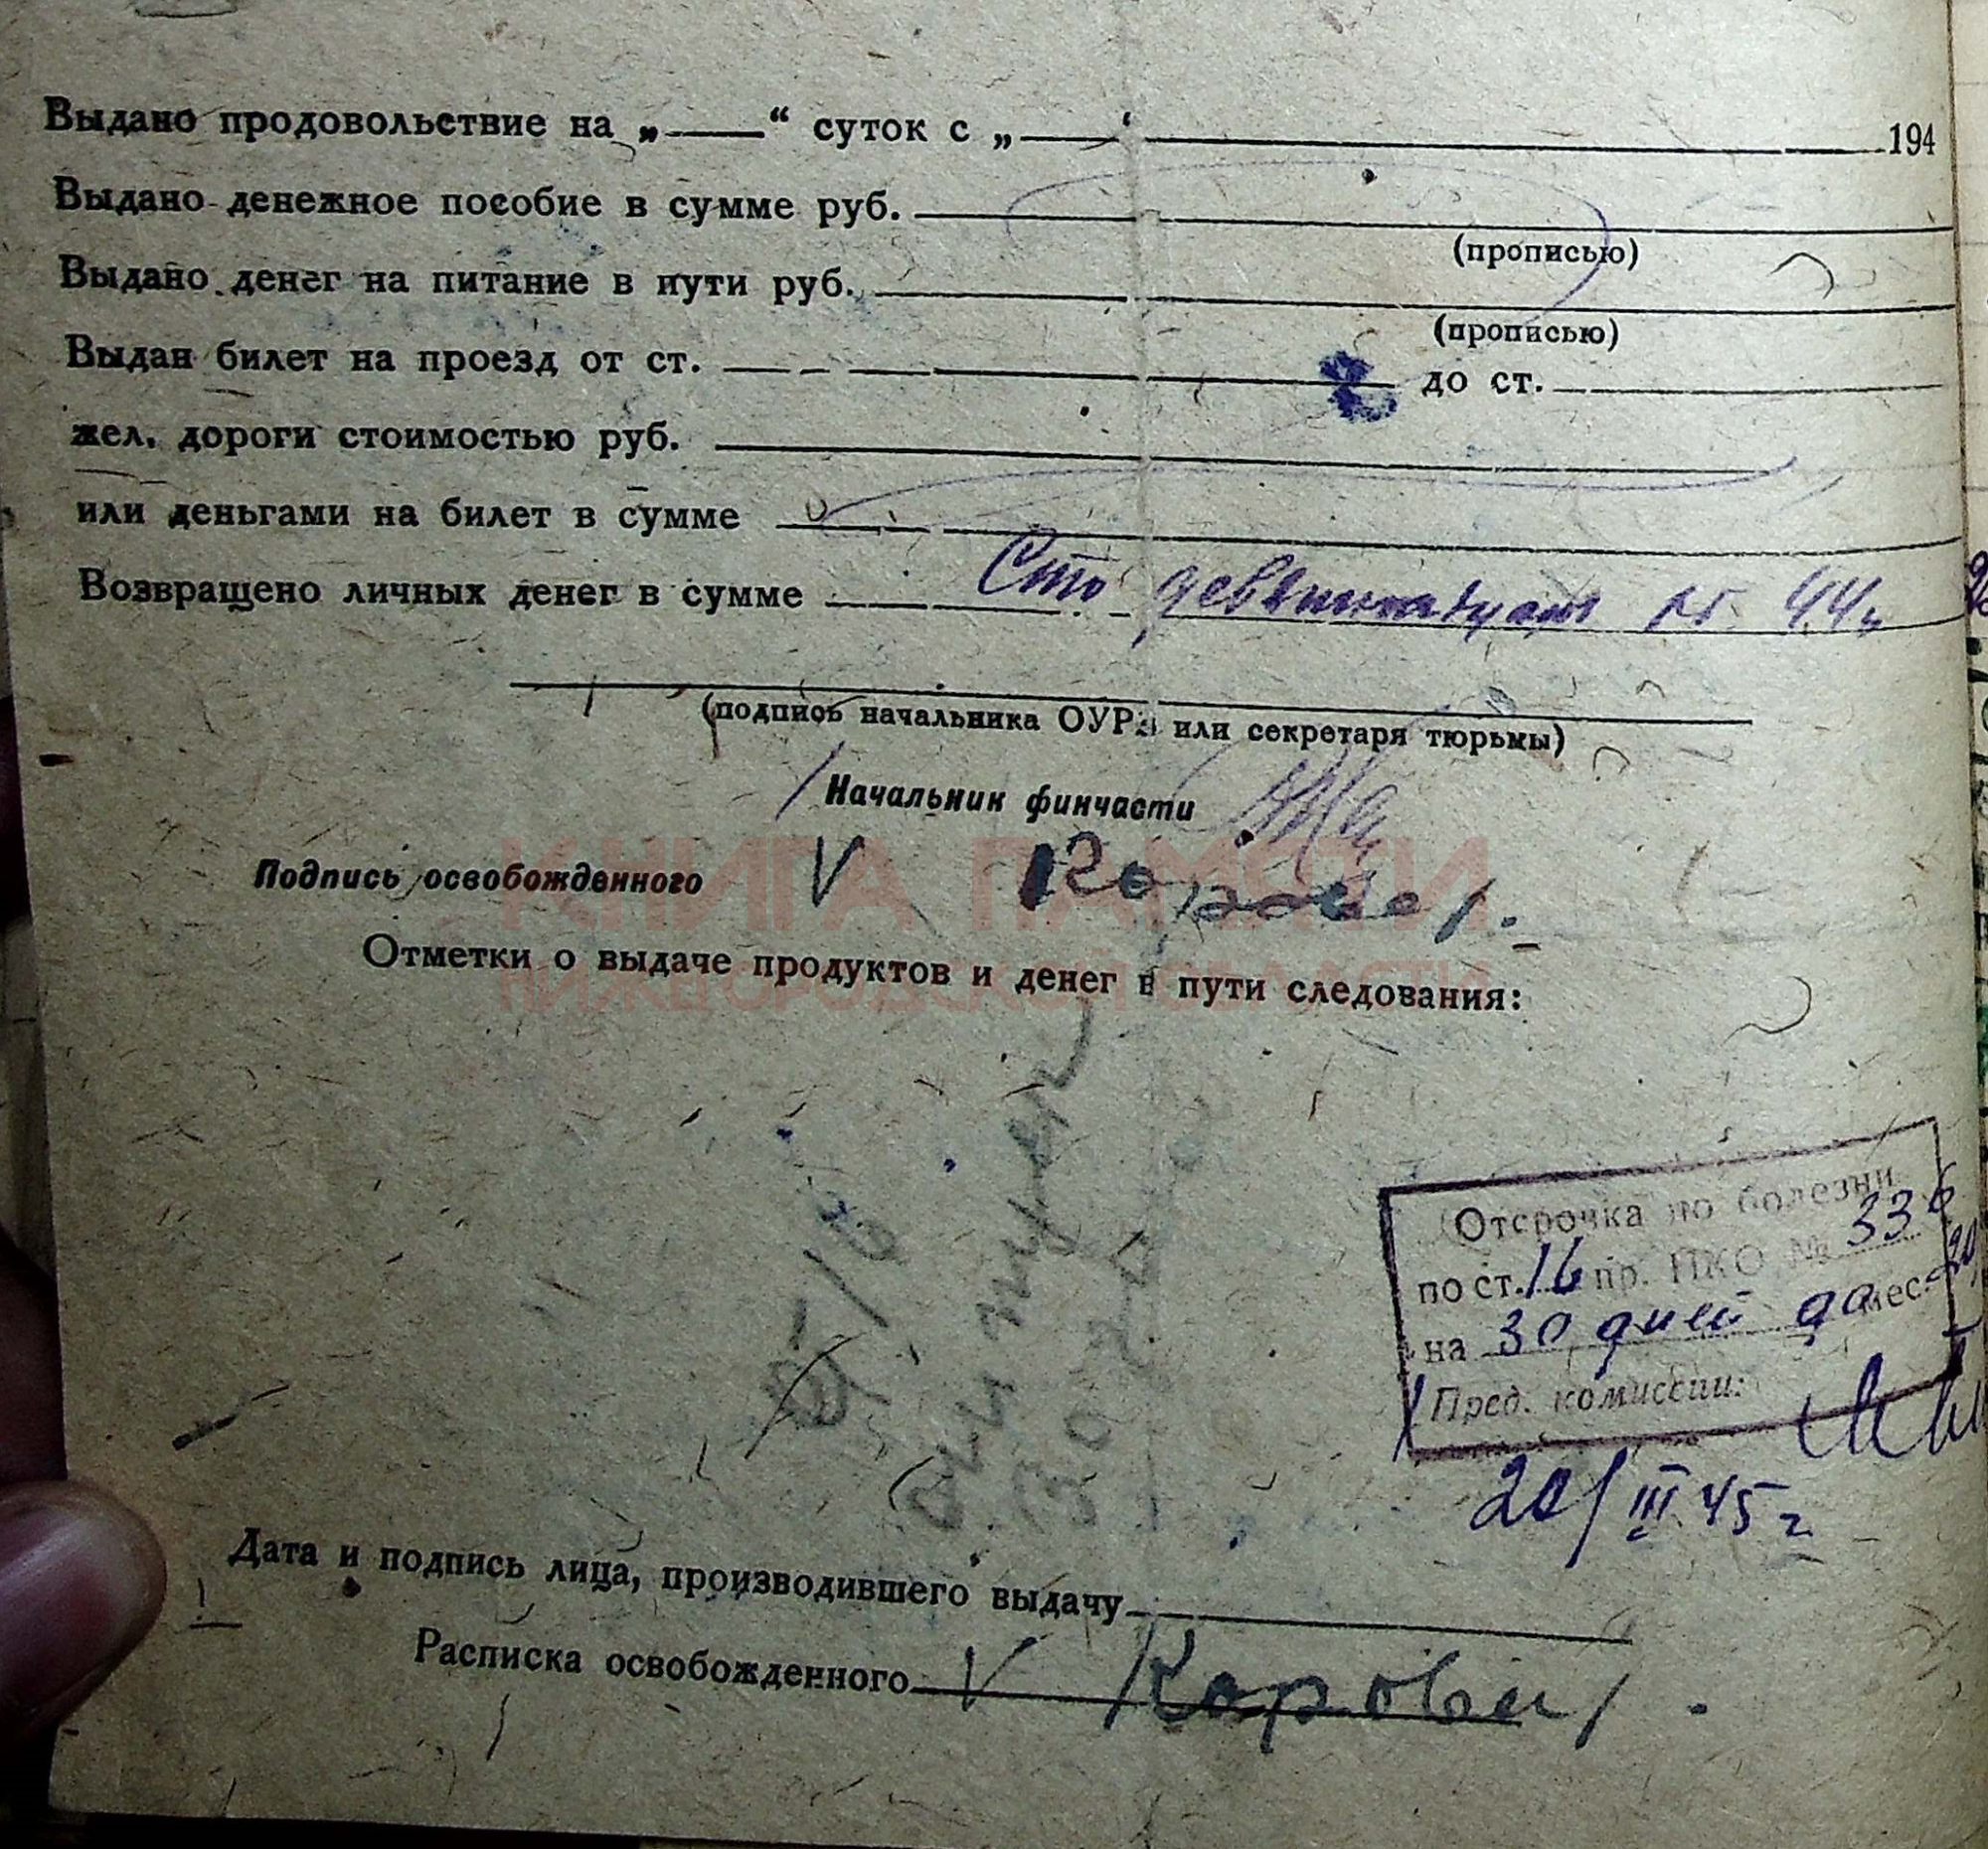 Выдано продовольствие на „ “ суток с „ “ 194
Выдано денежное пособие в сумме руб.
(прописью)
Выдано денег на питание в пути руб.
(прописью)
Выдан билет на проезд от ст. до ст.
жел. дороги стоимостью руб.
или деньгами на билет в сумме
Возвращено личных денег в сумме Сто девятнадцать 44
(подпись начальника ОУРЗ или секретаря тюрьмы)
Начальник финчасти
КНИГА ПАМЯТИ
Подпись освобожденного V
Отметки о выдаче продуктов и денег в пути следования:
НИЖЕГОРОДСКОЙ ОБЛАСТИ
Отсрочка по болезни
по ст. 16 пр. НКО № 336
на 30 дней до мес. 20
Пред. комиссии:
20/III 45 г
Дата и подпись лица, производившего выдачу
Расписка освобожденного V